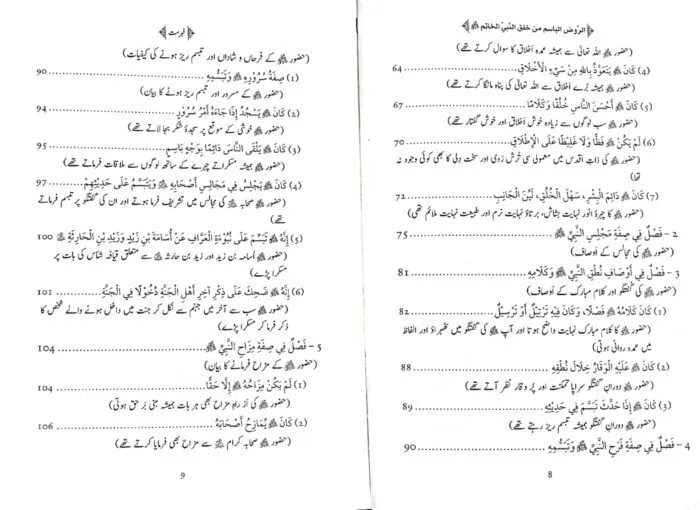 الرّوض الباسم من خلق النّبيّ الخاتم ﷺ
(حضور ﷺ اللہ تعالیٰ سے ہمیشہ عمدہ اخلاق کا سوال کرتے تھے)
(4) كَانَ يَتَعَوَّذُ بِاللهِ مِنْ سَيِّءِ الْأَخْلَاقِ ........ 64
(حضور ﷺ ہمیشہ بُرے اخلاق سے اللہ تعالیٰ کی پناہ مانگا کرتے تھے)
(5) كَانَ أَحْسَنَ النَّاسِ خُلُقًا وَكَلَامًا ........ 67
(حضور ﷺ سب لوگوں سے زیادہ خوش اخلاق اور خوش گفتار تھے)
(6) لَمْ يَكُنْ ﷺ فَظًّا وَلَا غَلِيظًا عَلَى الْإِطْلَاقِ ........ 70
(حضور ﷺ کی ذاتِ اقدس میں معمولی سی تُرش رَوی اور سخت دلی کا بھی کوئی وجود نہ
تھا)
(7) كَانَ دَائِمَ الْبِشْرِ، سَهْلَ الْخُلُقِ، لَيِّنَ الْجَانِبِ ........ 72
(حضور ﷺ کا چہرۂ انور نہایت بشاش، برتاؤ نہایت نرم اور طبیعت نہایت ملائم تھی)
2 - فَصْلٌ فِي صِفَةِ مَجْلِسِ النَّبِيِّ ﷺ ........ 75
(حضور ﷺ کی مجالس کے اَوصاف)
3 - فَصْلٌ فِي أَوْصَافِ نُطْقِ النَّبِيِّ ﷺ وَكَلَامِهِ ........ 81
(حضور ﷺ کی گفتگو اور کلام مبارک کے اَوصاف)
(1) كَانَ كَلَامُهُ فَصْلًا، وَكَانَ فِيهِ تَرْتِيلٌ أَوْ تَرْسِيلٌ ........ 82
(حضور ﷺ کا کلام مبارک نہایت واضح ہوتا اور آپ ﷺ کی گفتگو میں ٹھہراؤ اور الفاظ
میں عمدہ روانی ہوتی)
(2) كَانَ عَلَيْهِ الْوَقَارُ خِلَالَ نُطْقِهِ ........ 88
(حضور ﷺ دورانِ گفتگو سراپا تمکنت اور پُر وقار نظر آتے تھے)
(3) كَانَ إِذَا حَدَّثَ تَبَسَّمَ فِي حَدِيثِهِ ........ 89
(حضور ﷺ دورانِ گفتگو ہمیشہ تبسم ریز رہتے تھے)
4 - فَصْلٌ فِي صِفَةِ فَرَحِ النَّبِيِّ ﷺ وَتَبَسُّمِهِ ........ 90
8
فہرست
(حضور ﷺ کے فرحاں و شاداں اور تبسم ریز ہونے کی کیفیات)
(1) صِفَةُ سُرُوْرِهِ ﷺ وَتَبَسُّمِهِ ........ 90
(حضور ﷺ کے مسرور اور تبسم ریز ہونے کا بیان)
(2) كَانَ يَسْجُدُ إِذَا جَاءَهُ أَمْرُ سُرُوْرٍ ........ 94
(حضور ﷺ خوشی کے موقع پر سجدۂ شکر بجا لاتے تھے)
(3) كَانَ يَلْقَى النَّاسَ دَائِمًا بِوَجْهٍ بَاسِمٍ ........ 96
(حضور ﷺ ہمیشہ مسکراتے چہرے کے ساتھ لوگوں سے ملاقات فرماتے تھے)
(4) كَانَ يَجْلِسُ فِي مَجَالِسِ أَصْحَابِهِ وَيَتَبَسَّمُ عَلَى حَدِيثِهِمْ ........ 97
(حضور ﷺ صحابہ کی مجالس میں تشریف فرما ہوتے اور ان کی گفتگو پر تبسم فرماتے
تھے)
(5) إِنَّهُ ﷺ تَبَسَّمَ عَلَى نُبُوْءَةِ الْعَرَّافِ عَنْ أُسَامَةَ بْنِ زَيْدٍ وَزَيْدِ بْنِ الْحَارِثَةِ ﷺ 100
(حضور ﷺ اُسامہ بن زید اور زید بن حارثہ ﷺ سے متعلق قیافہ شناس کی بات پر
مسکرا پڑے)
(6) إِنَّهُ ﷺ ضَحِكَ عَلَى ذِكْرِ آخِرِ أَهْلِ الْجَنَّةِ دُخُوْلًا فِي الْجَنَّةِ ........ 101
(حضور ﷺ سب سے آخر میں جہنم سے نکل کر جنت میں داخل ہونے والے شخص کا
ذکر فرما کر مسکرا پڑے)
5 - فَصْلٌ فِي صِفَةِ مِزَاحِ النَّبِيِّ ﷺ ........ 104
(حضور ﷺ کے مزاح فرمانے کا بیان)
(1) لَمْ يَكُنْ مِزَاحُهُ ﷺ إِلَّا حَقًّا ........ 104
(حضور ﷺ کی از راہِ مزاح بھی ہر بات ہمیشہ مبنی بر حق ہوتی)
(2) كَانَ يُمَازِحُ أَصْحَابَهُ ........ 106
(حضور ﷺ صحابہ کرام ﷺ سے مزاح بھی فرمایا کرتے تھے)
9